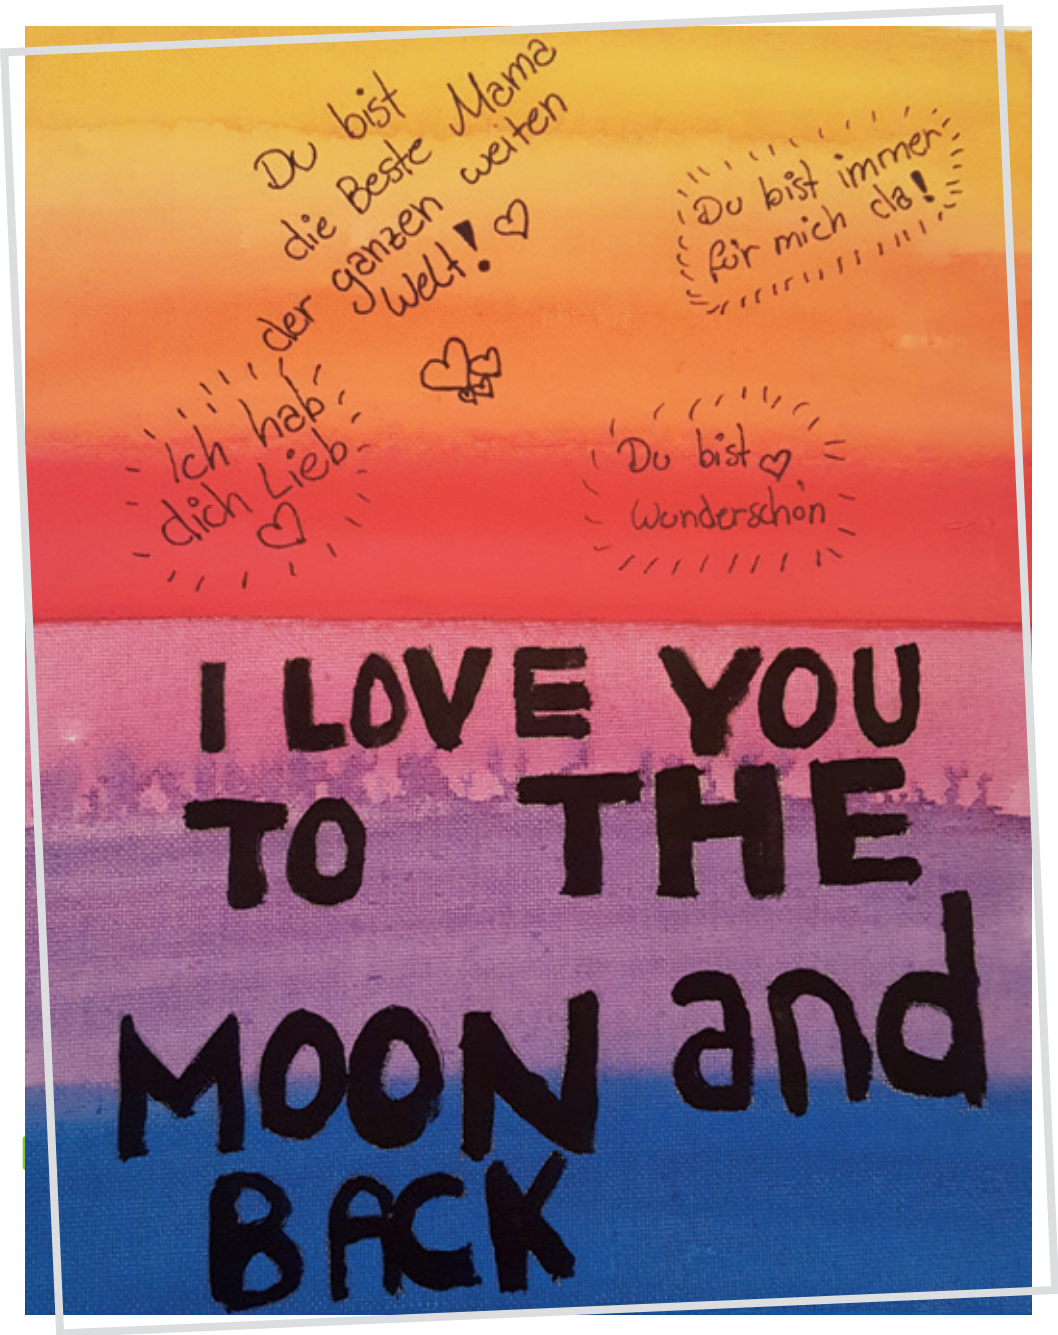 Du bist
die Beste Mama
der ganzen weiten
Welt!
Du bist immer
für mich da!
Ich hab
dich Lieb
Du bist
Wunderschön
I LOVE YOU
TO THE
MOON and
BACK